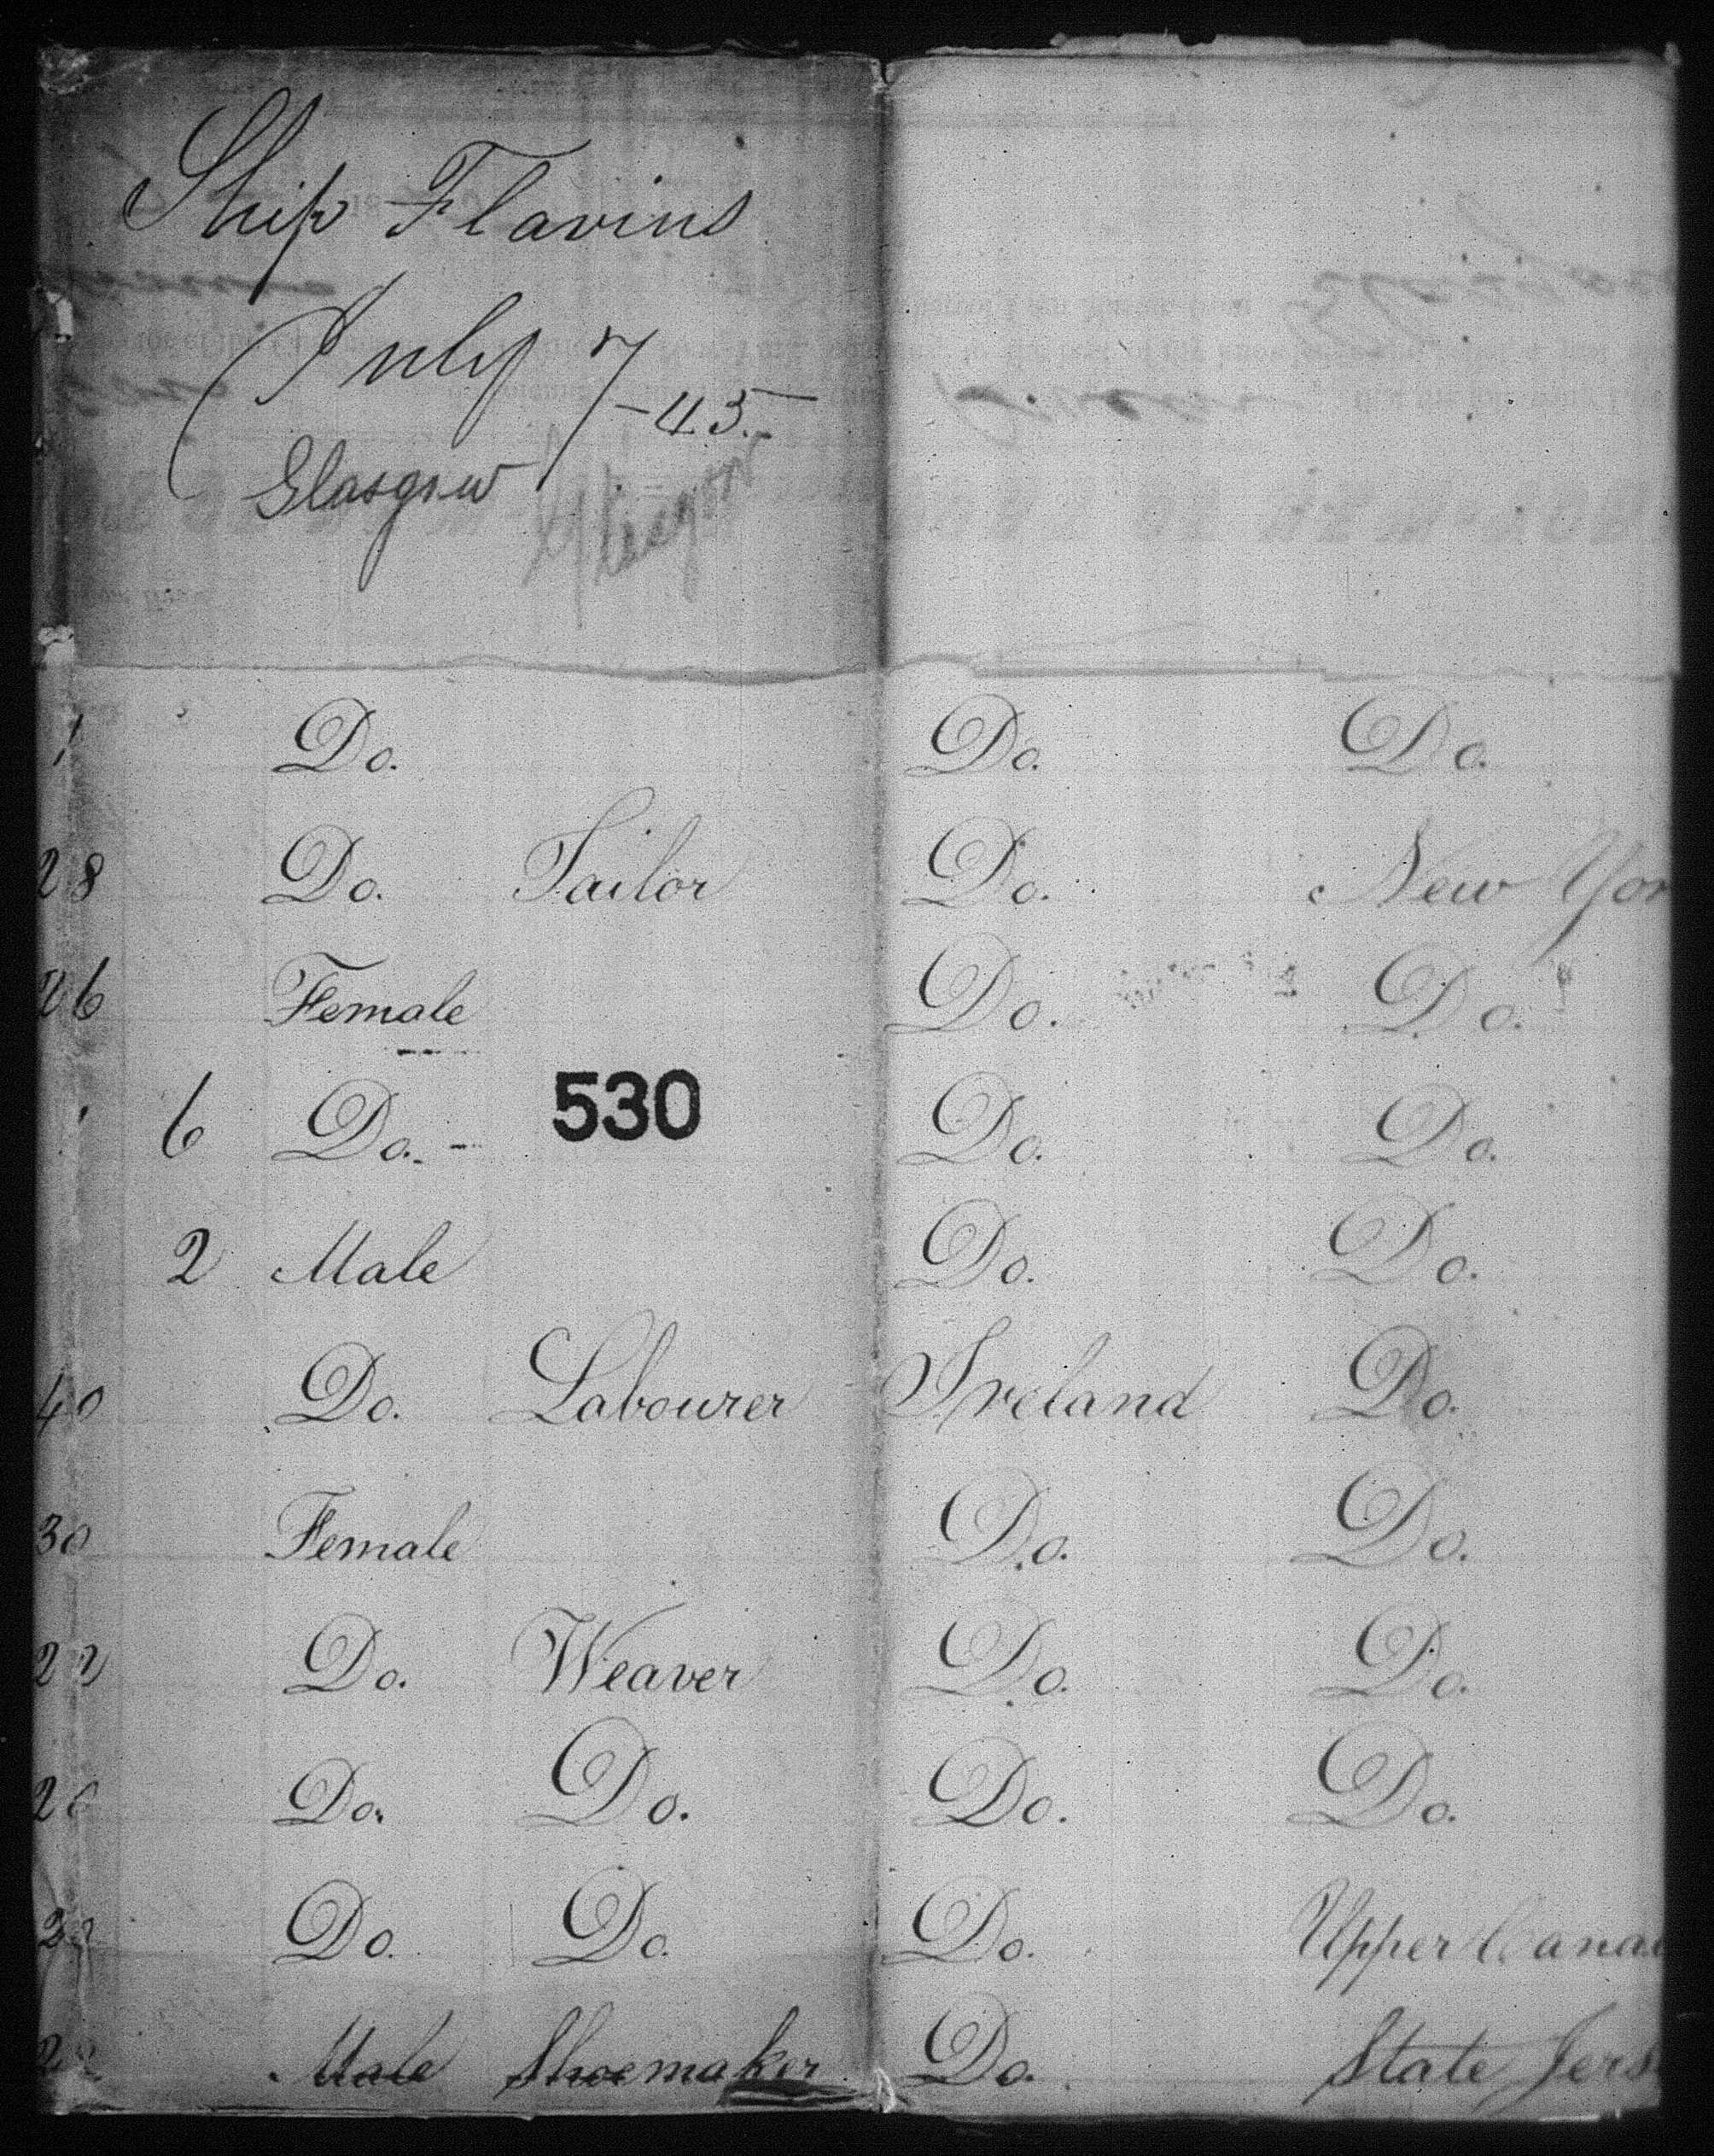 Ship Flavius
July 7 - 45.
Glasgow Glasgow
1 Do. Do. Do.
28 Do. Tailor Do. New Yor
26 Female Do. Do.
6 Do. - 530 Do. Do.
2 Male Do. Do.
40 Do. Labourer Ireland Do.
30 Female Do. Do.
22 Do. Weaver Do. Do.
Do. Do. Do. Do.
Do. Do. Do. Upper Cana
Male Shoemaker Do. State Jers